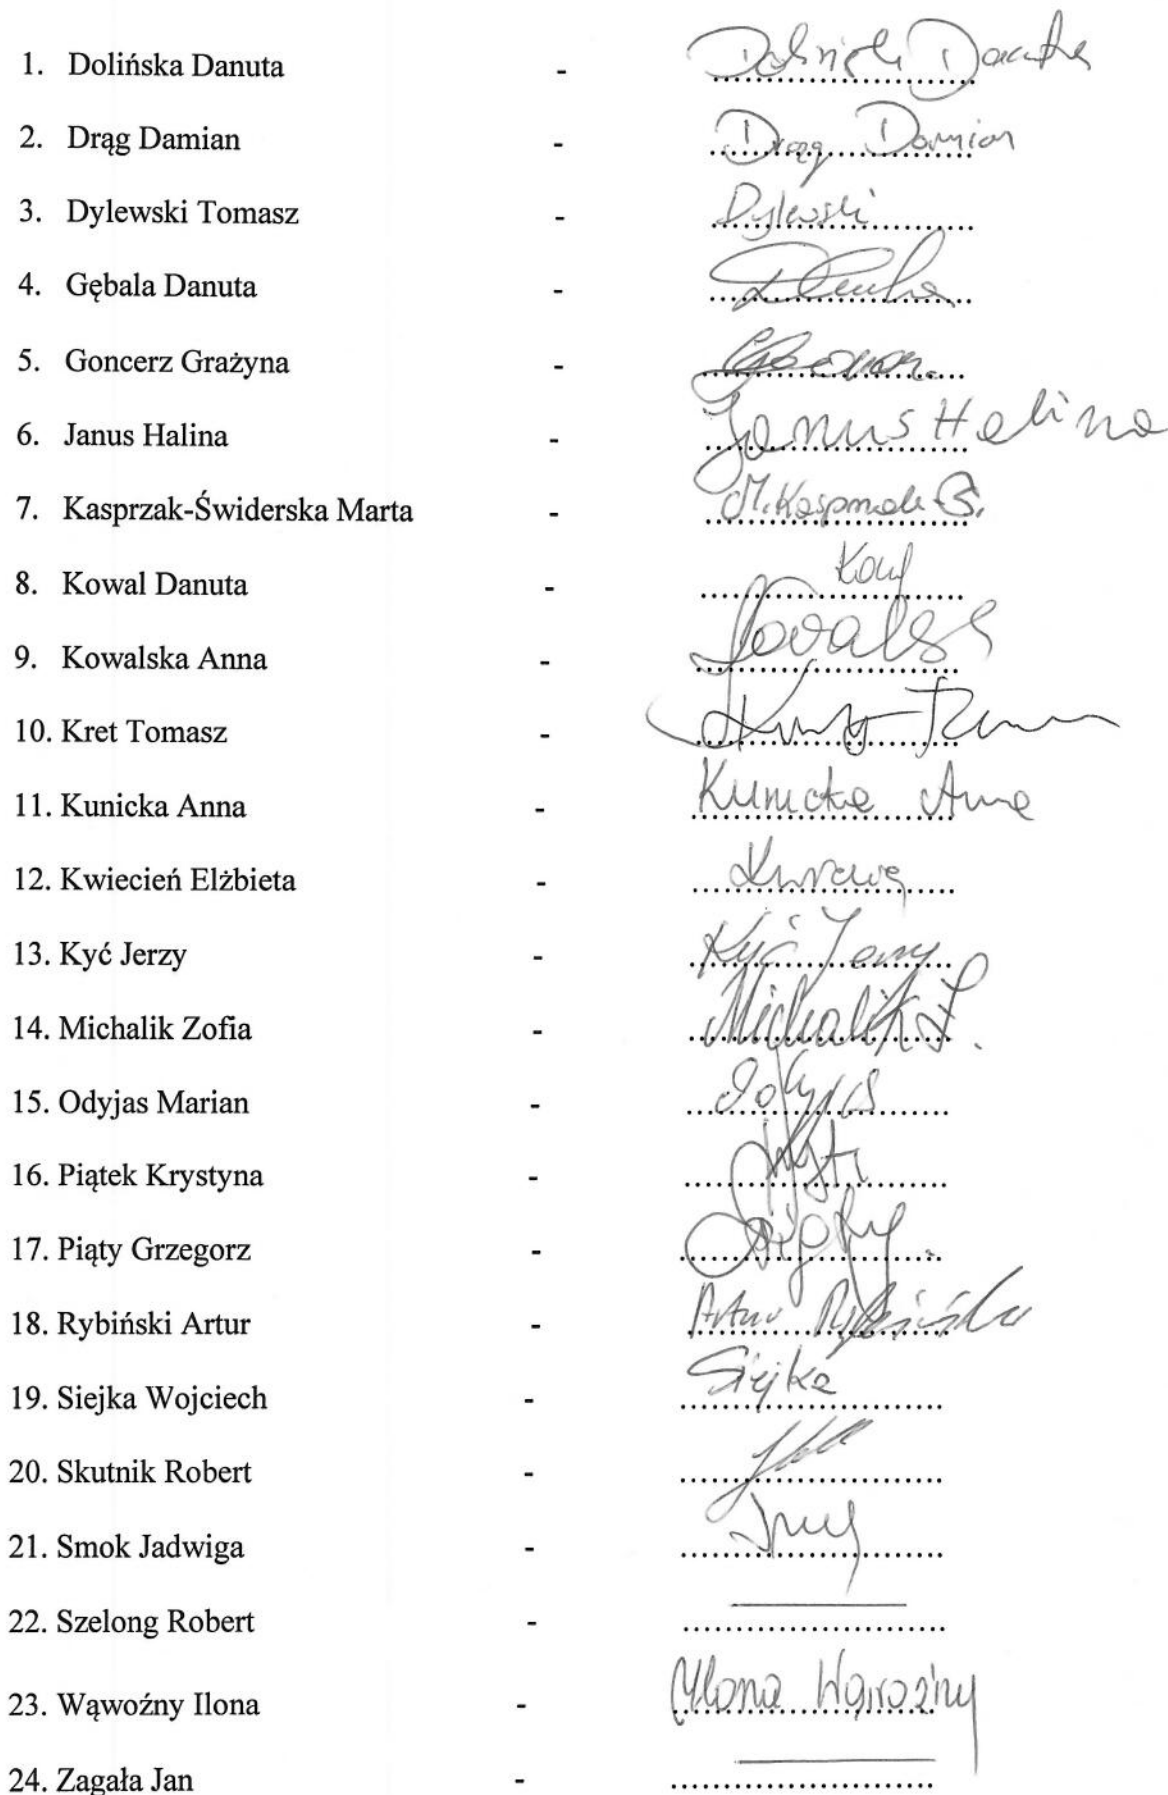 1. Dolińska Danuta - Dolińska Danuta
2. Drąg Damian - Drąg Damian
3. Dylewski Tomasz - Dylewski
4. Gębala Danuta -
5. Goncerz Grażyna -
6. Janus Halina - Janus Halina
7. Kasprzak-Świderska Marta - M. Kasprzak Ś.
8. Kowal Danuta -
9. Kowalska Anna -
10. Kret Tomasz -
11. Kunicka Anna - Kunicka Anna
12. Kwiecień Elżbieta -
13. Kyć Jerzy - Kyć Jerzy
14. Michalik Zofia - Michalik Z.
15. Odyjas Marian -
16. Piątek Krystyna -
17. Piąty Grzegorz -
18. Rybiński Artur - Artur Rybiński
19. Siejka Wojciech - Siejka
20. Skutnik Robert -
21. Smok Jadwiga -
22. Szelong Robert -
23. Wąwoźny Ilona - Ilona Wąwoźny
24. Zagała Jan -